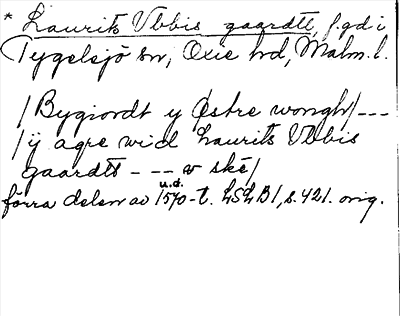 * Laurits Vbbis gaardtt, f.gd i
Tygelsjö sn, Oxie hd, Malm. l.
/Bygiordt y Østre wongh/---
/ÿ agre wid Laurits Vbbis
gaardtt - -- w skě/
u.d.
förra delen av 1570-t. LSLB1, s. 421. orig.